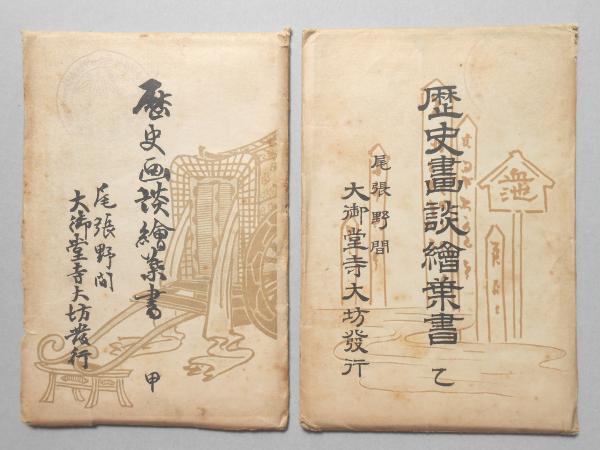 歴史画談繪葉書
甲
尾張野間
大御堂寺大坊發行
歴史畫談繪葉書
乙
尾張野間
大御堂寺大坊發行
血池